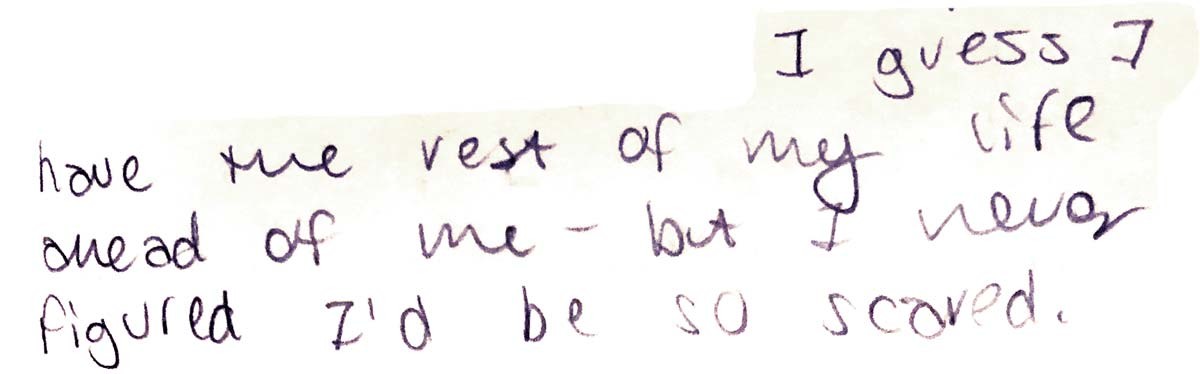 I guess I
have the rest of my life
ahead of me - but I never
figured I'd be so scared.